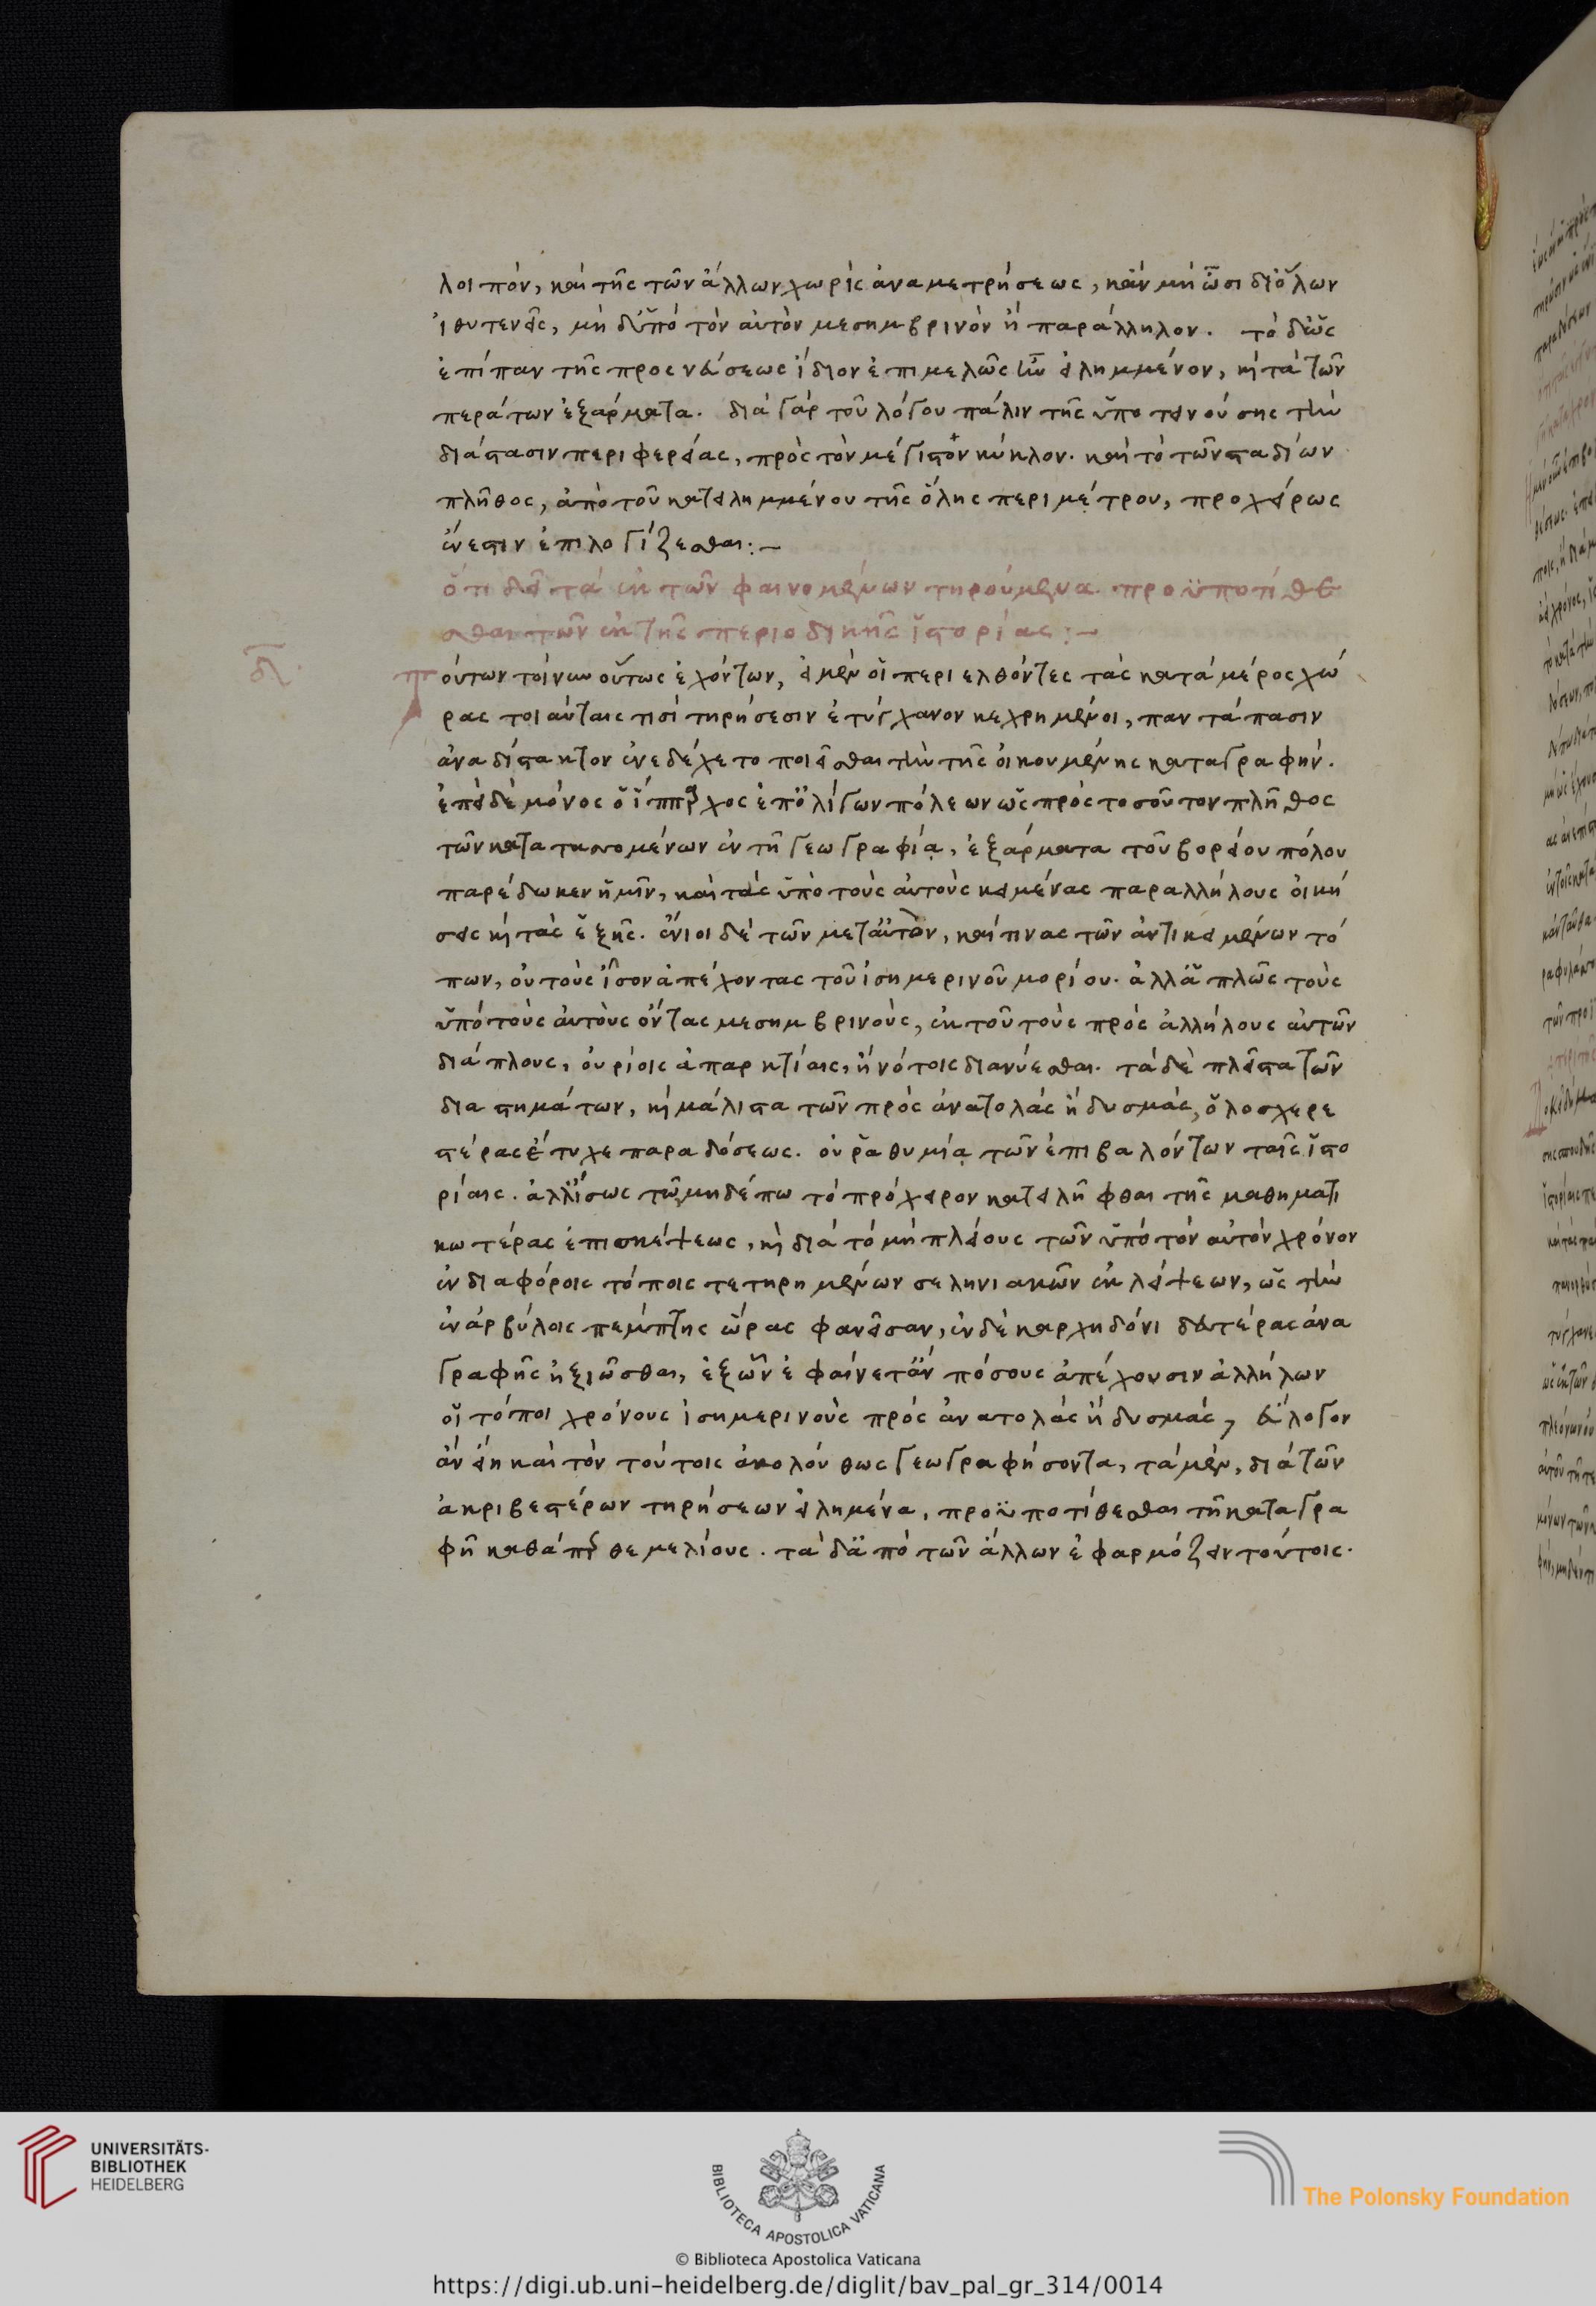 λοιπόν, καὶ τῆς τῶν ἄλλων χωρὶς ἀναμετρήσεως, κἂν μὴ ὦσι διόλων
ἰθυτενεῖς, μὴ δ' ὑπὸ τὸν αὐτὸν μεσημβρινὸν ἢ παράλληλον. τὸ δ' ὡς
ἐπίπαν τῆς προσνεύσεως ἴδιον ἐπιμελῶς ἦν εἰλημμένον, κὶ τὰ τῶν
περάτων ἐξάρματα. διὰ γὰρ τοῦ λόγου πάλιν τῆς ὑποτεινούσης τὴν
διάστασιν περιφερείας, πρὸς τὸν μέγιστον κύκλον. καὶ τὸ τῶν σταδίων
πλῆθος, ἀπὸ τοῦ κατειλημμένου τῆς ὅλης περιμέτρου, προχείρως
ἔνεστιν ἐπιλογίζεσθαι:-
ὅτι δεῖ τὰ ἐκ τῶν φαινομένων τηρούμενα προϋποτίθε
σθαι τῶν ἐκ τῆς περιοδικῆς ἱστορίας:-
δ.
Τούτων τοίνυν οὕτως ἐχόντων, εἰ μὲν οἱ περιελθόντες τὰς κατὰ μέρος χώ
ρας τοιαύταις τισὶ τηρήσεσιν ἐτύγχανον κεχρημένοι, παντάπασιν
ἀναδίστακτον ἐνεδέχετο ποιεῖσθαι τὴν τῆς οἰκουμένης καταγραφήν.
ἐπεὶ δὲ μόνος ὁ ἵππαρχος ἐπ' ὀλίγων πόλεων ὡς πρὸς τοσοῦτον πλῆθος
τῶν κατατασσομένων ἐν τῇ γεωγραφίᾳ, ἐξάρματα τοῦ βορείου πόλου
παρέδωκεν ἡμῖν, καὶ τὰς ὑπὸ τοὺς αὐτοὺς κειμένας παραλλήλους οἰκή
σεις κὶ τὰς ἑξῆς. ἔνιοι δὲ τῶν μετ' αὐτὸν, καί τινας τῶν ἀντικειμένων τό
πων, οὐ τοὺς ἴσον ἀπέχοντας τοῦ ἰσημερινοῦ μορίου. ἀλλ' ἁπλῶς τοὺς
ὑπὸ τοὺς αὐτοὺς ὄντας μεσημβρινοὺς, ἐκ τοῦ τοὺς πρὸς ἀλλήλους αὐτῶν
διάπλους, οὐρίοις ἀπαρκτίαις, ἢ νότοις διανύεσθαι. τὰ δὲ πλεῖστα τῶν
διαστημάτων, κὶ μάλιστα τῶν πρὸς ἀνατολὰς ἢ δυσμὰς, ὁλοσχερε
στέρας ἔτυχε παραδόσεως. οὐ ῥαθυμίᾳ τῶν ἐπιβαλόντων ταῖς ἱστο
ρίαις. ἀλλ' ἴσως τῷ μηδέπω τὸ πρόχειρον κατειλῆφθαι τῆς μαθηματι
κωτέρας ἐπισκέψεως, κὶ διὰ τὸ μὴ πλείους τῶν ὑπὸ τὸν αὐτὸν χρόνον
ἐν διαφόροις τόποις τετηρημένων σεληνιακῶν ἐκλείψεων, ὡς τὴν
ἐν ἀρβύλοις πέμπτης ὥρας φανεῖσαν, ἐν δὲ καρχηδόνι δευτέρας ἀνα
γραφῆς ἠξιῶσθαι, ἐξ ὧν ἐφαίνετ' ἂν πόσους ἀπέχουσιν ἀλλήλων
οἱ τόποι χρόνους ἰσημερινοὺς πρὸς ἀνατολὰς ἢ δυσμάς, εὔλογον
ἂν εἴη καὶ τὸν τούτοις ἀκολούθως γεωγραφήσοντα, τὰ μὲν, διὰ τῶν
ἀκριβεστέρων τηρήσεων εἰλημένα, προϋποτίθεσθαι τῇ καταγρα
φῇ καθάπερ θεμελίους. τὰ δ' ἀπὸ τῶν ἄλλων ἐφαρμόζειν τούτοις.
UNIVERSITÄTS-
BIBLIOTHEK
HEIDELBERG
BIBLIOTECA APOSTOLICA VATICANA
© Biblioteca Apostolica Vaticana
The Polonsky Foundation
https://digi.ub.uni-heidelberg.de/diglit/bav_pal_gr_314/0014